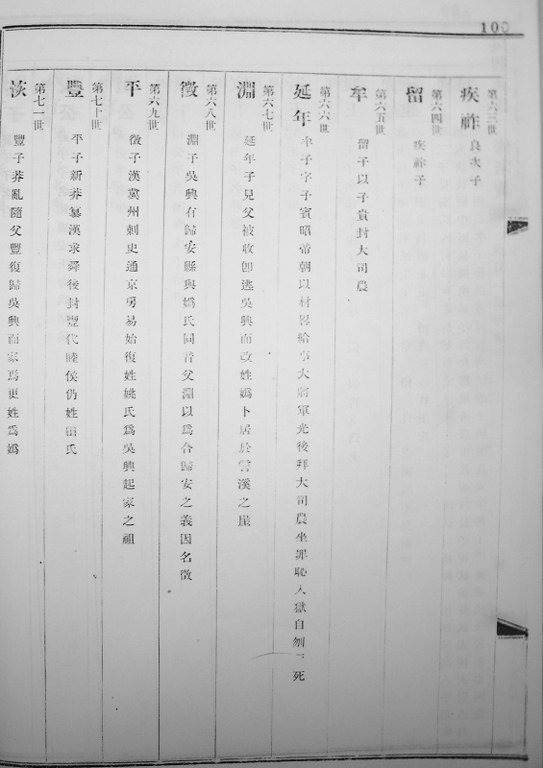 100
第六三世
疾祚 良次子
第六四世
留 疾祚子
第六五世
牟 留子以子貴封大司農
第六六世
延年 牟子字子賓昭帝朝以材畧給事大將軍光後拜大司農坐罪恥入獄自刎死
第六七世
淵 延年子兄父被收卽逃吳興而改姓嬀卜居於雲溪之崖
第六八世
徵 淵子吳興有歸安縣與嬀氏同音父淵以爲合歸安之義因名徵
第六九世
平 徵子漢冀州刺史通京房易始復姓姚氏爲吳興起家之祖
第七十世
豐 平子新莽篡漢求舜後封豐代睦侯仍姓田氏
第七一世
恢 豐子莽亂隨父豐復歸吳興而家焉更姓爲嬀